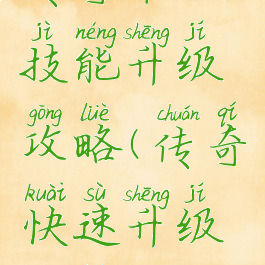 jì néng shēng jí
技能升级
gōng lüè chuán qí
攻略(传奇
kuài sù shēng jí
快速升级